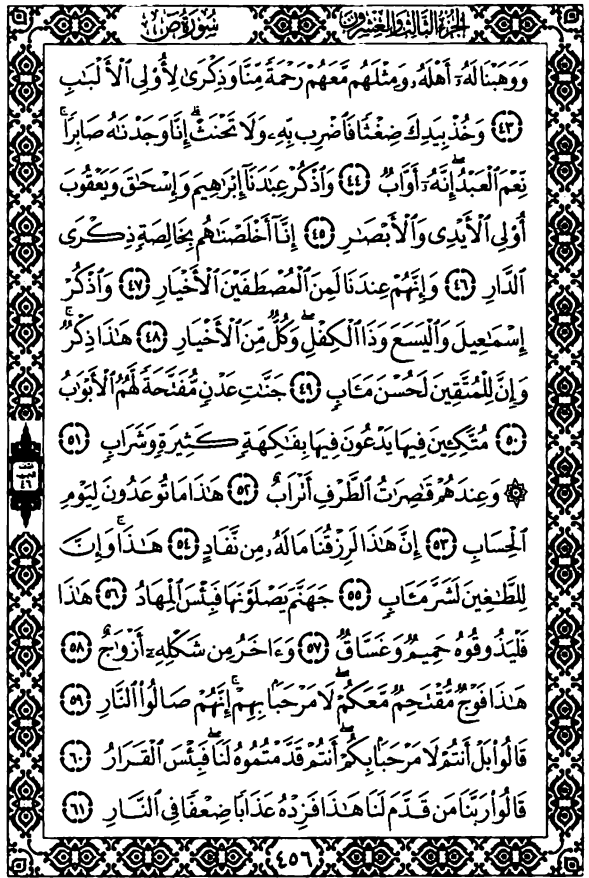 الجزء الثالث والعشرون
سورة ص
وَوَهَبْنَا لَهُۥٓ أَهْلَهُۥ وَمِثْلَهُم مَّعَهُمْ رَحْمَةً مِّنَّا وَذِكْرَىٰ لِأُو۟لِى ٱلْأَلْبَٰبِ
٤٣ وَخُذْ بِيَدِكَ ضِغْثًا فَٱضْرِب بِّهِۦ وَلَا تَحْنَثْ ۗ إِنَّا وَجَدْنَٰهُ صَابِرًا ۚ
نِّعْمَ ٱلْعَبْدُ ۖ إِنَّهُۥٓ أَوَّابٌ ٤٤ وَٱذْكُرْ عِبَٰدَنَآ إِبْرَٰهِيمَ وَإِسْحَٰقَ وَيَعْقُوبَ
أُو۟لِى ٱلْأَيْدِى وَٱلْأَبْصَٰرِ ٤٥ إِنَّآ أَخْلَصْنَٰهُم بِخَالِصَةٍ ذِكْرَى
ٱلدَّارِ ٤٦ وَإِنَّهُمْ عِندَنَا لَمِنَ ٱلْمُصْطَفَيْنَ ٱلْأَخْيَارِ ٤٧ وَٱذْكُرْ
إِسْمَٰعِيلَ وَٱلْيَسَعَ وَذَا ٱلْكِفْلِ ۖ وَكُلٌّ مِّنَ ٱلْأَخْيَارِ ٤٨ هَٰذَا ذِكْرٌ ۚ
وَإِنَّ لِلْمُتَّقِينَ لَحُسْنَ مَـَٔابٍ ٤٩ جَنَّٰتِ عَدْنٍ مُّفَتَّحَةً لَّهُمُ ٱلْأَبْوَٰبُ
٥٠ مُتَّكِـِٔينَ فِيهَا يَدْعُونَ فِيهَا بِفَٰكِهَةٍ كَثِيرَةٍ وَشَرَابٍ ٥١
۞ وَعِندَهُمْ قَٰصِرَٰتُ ٱلطَّرْفِ أَتْرَابٌ ٥٢ هَٰذَا مَا تُوعَدُونَ لِيَوْمِ
ٱلْحِسَابِ ٥٣ إِنَّ هَٰذَا لَرِزْقُنَا مَا لَهُۥ مِن نَّفَادٍ ٥٤ هَٰذَا ۚ وَإِنَّ
لِلطَّٰغِينَ لَشَرَّ مَـَٔابٍ ٥٥ جَهَنَّمَ يَصْلَوْنَهَا فَبِئْسَ ٱلْمِهَادُ ٥٦ هَٰذَا
فَلْيَذُوقُوهُ حَمِيمٌ وَغَسَّاقٌ ٥٧ وَءَاخَرُ مِن شَكْلِهِۦٓ أَزْوَٰجٌ ٥٨
هَٰذَا فَوْجٌ مُّقْتَحِمٌ مَّعَكُمْ ۖ لَا مَرْحَبًۢا بِهِمْ ۚ إِنَّهُمْ صَالُوا۟ ٱلنَّارِ ٥٩
قَالُوا۟ بَلْ أَنتُمْ لَا مَرْحَبًۢا بِكُمْ ۖ أَنتُمْ قَدَّمْتُمُوهُ لَنَا ۖ فَبِئْسَ ٱلْقَرَارُ ٦٠
قَالُوا۟ رَبَّنَا مَن قَدَّمَ لَنَا هَٰذَا فَزِدْهُ عَذَابًا ضِعْفًا فِى ٱلنَّارِ ٦١
٤٥٦